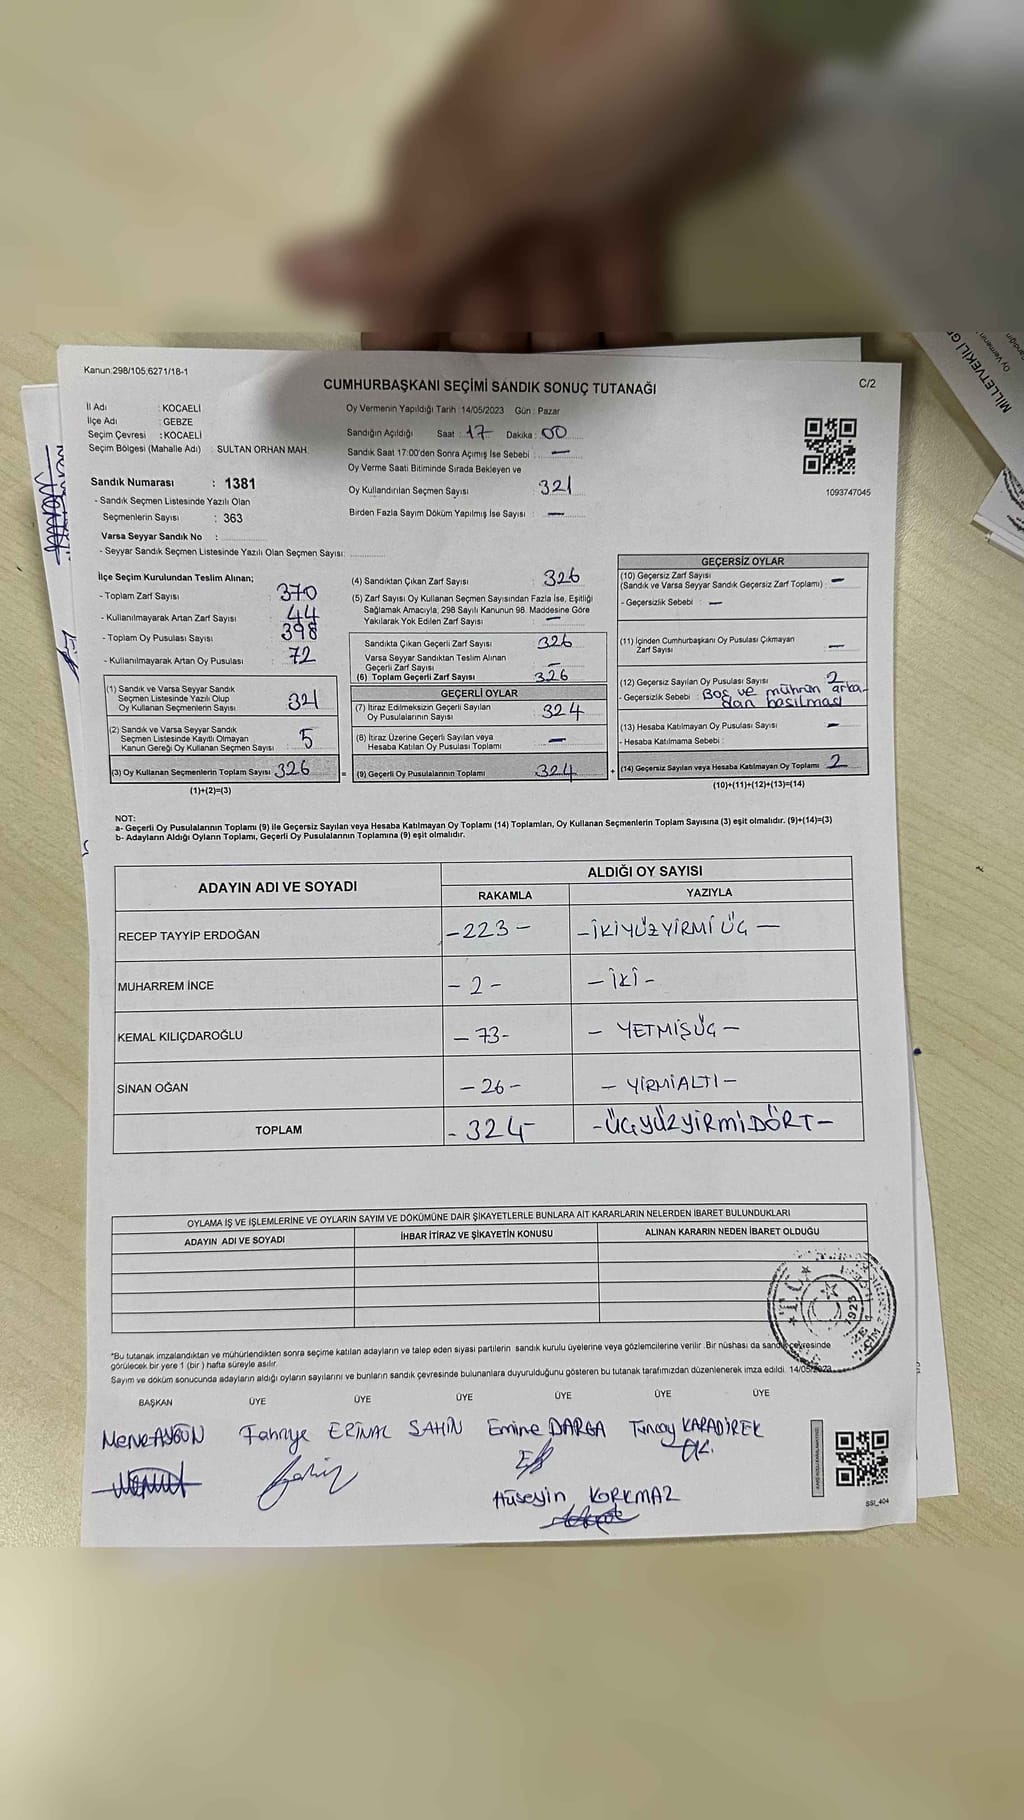 Kanun:298/105,6271/18-1
CUMHURBAŞKANI SEÇİMİ SANDIK SONUÇ TUTANAĞI
C/2
İl Adı : KOCAELİ
İlçe Adı : GEBZE
Seçim Çevresi : KOCAELİ
Seçim Bölgesi (Mahalle Adı) : SULTAN ORHAN MAH.
Sandık Numarası : 1381
- Sandık Seçmen Listesinde Yazılı Olan
Seçmenlerin Sayısı : 363
Varsa Seyyar Sandık No :
- Seyyar Sandık Seçmen Listesinde Yazılı Olan Seçmen Sayısı:
Oy Vermenin Yapıldığı Tarih :14/05/2023 Gün : Pazar
Sandığın Açıldığı Saat : 17 Dakika : 00
Sandık Saat 17:00'den Sonra Açımış İse Sebebi : —
Oy Verme Saati Bitiminde Sırada Bekleyen ve
Oy Kullandırılan Seçmen Sayısı : 321
Birden Fazla Sayım Döküm Yapılmış İse Sayısı : —
1093747045
İlçe Seçim Kurulundan Teslim Alınan;
- Toplam Zarf Sayısı : 370
- Kullanılmayarak Artan Zarf Sayısı : 44
- Toplam Oy Pusulası Sayısı : 398
- Kullanılmayarak Artan Oy Pusulası : 72
(1) Sandık ve Varsa Seyyar Sandık
Seçmen Listesinde Yazılı Olup
Oy Kullanan Seçmenlerin Sayısı : 321
(2) Sandık ve Varsa Seyyar Sandık
Seçmen Listesinde Kayıtlı Olmayan
Kanun Gereği Oy Kullanan Seçmen Sayısı : 5
(3) Oy Kullanan Seçmenlerin Toplam Sayısı : 326
(1)+(2)=(3)
(4) Sandıktan Çıkan Zarf Sayısı : 326
(5) Zarf Sayısı Oy Kullanan Seçmen Sayısından Fazla İse, Eşitliği
Sağlamak Amacıyla, 298 Sayılı Kanunun 98. Maddesine Göre
Yakılarak Yok Edilen Zarf Sayısı : —
Sandıkta Çıkan Geçerli Zarf Sayısı : 326
Varsa Seyyar Sandıktan Teslim Alınan
Geçerli Zarf Sayısı : —
(6) Toplam Geçerli Zarf Sayısı : 326
GEÇERLİ OYLAR
(7) İtiraz Edilmeksizin Geçerli Sayılan
Oy Pusulalarının Sayısı : 324
(8) İtiraz Üzerine Geçerli Sayılan veya
Hesaba Katılan Oy Pusulası Toplamı : —
= (9) Geçerli Oy Pusulalarının Toplamı : 324
GEÇERSİZ OYLAR
(10) Geçersiz Zarf Sayısı
(Sandık ve Varsa Seyyar Sandık Geçersiz Zarf Toplamı) : —
- Geçersizlik Sebebi : —
(11) İçinden Cumhurbaşkanı Oy Pusulası Çıkmayan
Zarf Sayısı : —
(12) Geçersiz Sayılan Oy Pusulası Sayısı : 2
- Geçersizlik Sebebi : Boş ve mührün arka-
dan basılması
(13) Hesaba Katılmayan Oy Pusulası Sayısı : —
- Hesaba Katılmama Sebebi :
+ (14) Geçersiz Sayılan veya Hesaba Katılmayan Oy Toplamı : 2
(10)+(11)+(12)+(13)=(14)
NOT:
a- Geçerli Oy Pusulalarının Toplamı (9) ile Geçersiz Sayılan veya Hesaba Katılmayan Oy Toplamı (14) Toplamları, Oy Kullanan Seçmenlerin Toplam Sayısına (3) eşit olmalıdır. (9)+(14)=(3)
b- Adayların Aldığı Oyların Toplamı, Geçerli Oy Pusulalarının Toplamına (9) eşit olmalıdır.
ADAYIN ADI VE SOYADI ALDIĞI OY SAYISI
RAKAMLA YAZIYLA
RECEP TAYYİP ERDOĞAN -223- -İKİYÜZYİRMİ ÜÇ-
MUHARREM İNCE -2- -İKİ-
KEMAL KILIÇDAROĞLU -73- -YETMİŞÜÇ-
SİNAN OĞAN -26- -YİRMİALTI-
TOPLAM -324- -ÜÇYÜZYİRMİDÖRT-
OYLAMA İŞ VE İŞLEMLERİNE VE OYLARIN SAYIM VE DÖKÜMÜNE DAİR ŞİKAYETLERLE BUNLARA AİT KARARLARIN NELERDEN İBARET BULUNDUKLARI
ADAYIN ADI VE SOYADI İHBAR İTİRAZ VE ŞİKAYETİN KONUSU ALINAN KARARIN NEDEN İBARET OLDUĞU
T.C.
1923
*Bu tutanak imzalandıktan ve mühürlendikten sonra seçime katılan adayların ve talep eden siyasi partilerin sandık kurulu üyelerine veya gözlemcilerine verilir. Bir nüshası da sandık çevresinde
görülecek bir yere 1 (bir ) hafta süreyle asılır.
Sayım ve döküm sonucunda adayların aldığı oyların sayılarını ve bunların sandık çevresinde bulunanlara duyurulduğunu gösteren bu tutanak tarafımızdan düzenlenerek imza edildi. 14/05/2023
BAŞKAN ÜYE ÜYE ÜYE ÜYE ÜYE ÜYE
Merve AYGÜN Fahriye ERİNAL ŞAHİN Emine DARGA Tuncay KARADİREK
Hüseyin KORKMAZ
SSI_404
MİLLETVEKİLİ